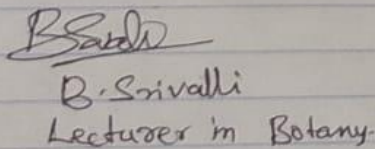 B. Srivalli
Lecturer in Botany.